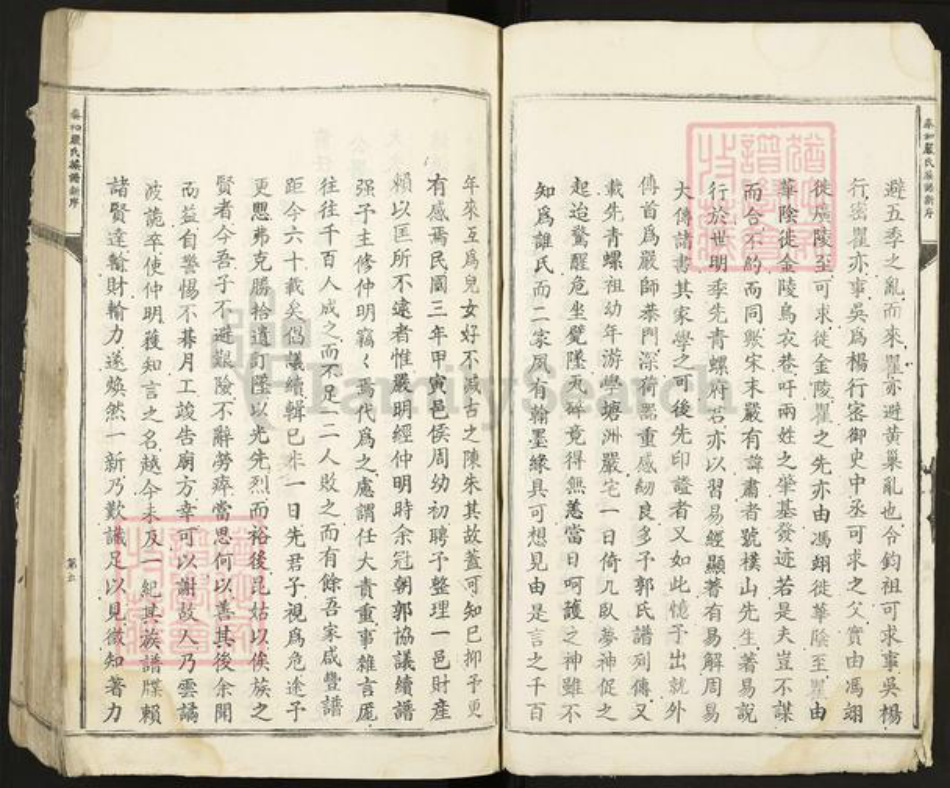 泰和嚴氏族譜新序
避五季之亂而來瞿亦避黃巢亂也令鈞祖可求事吳楊
行密瞿亦事吳為楊行密御史中丞可求之父實由馮翊
徙廣陵至可求徙金陵瞿之先亦由馮翊徙華陰至瞿由
華陰徙金陵烏衣巷吁兩姓之肇基發迹若是夫豈不謀
而合不約而同歟宋末嚴有諱肅者號樸山先生著易說
行於世明季先青螺府君亦以習易經顯著有易解周易
大傳諸書其家學之可後先印證者又如此憶予出就外
傅首為嚴師棻門深荷器重感紉良多予郭氏譜列傳又
載先青螺祖幼年游學塘洲嚴宅一日倚几臥夢神促之
起迨驚醒危坐甓墜瓦碎竟得無恙當日呵護之神雖不
知為誰氏而二家夙有翰墨緣具可想見由是言之千百
年來互為兒女好不減古之陳朱其故蓋可知已抑予更
有感焉民國三年甲寅邑侯周幼初聘予整理一邑財產
賴以匡所不逮者惟嚴明經仲明時余冠朝郭協議續譜
强予主修仲明竊〱焉代為之慮謂任大責重事雜言厖
往往千百人成之而不足一二人敗之而有餘吾家咸豐譜
距今六十載矣倡議續輯已非一日先君子視為危途予
更思弗克勝拾遺訂墜以光先烈而裕後昆姑以俟族之
賢者今吾子不避艱險不辭勞瘁當思何以善其後余聞
而益自警惕不朞月工竣告廟方幸可以謝故人乃雲譎
波詭卒使仲明獲知言之名越今未及一紀其族譜牒賴
諸賢達輸財輸力遂煥然一新乃歎識足以見微知著力
泰和嚴氏族譜新序
第五